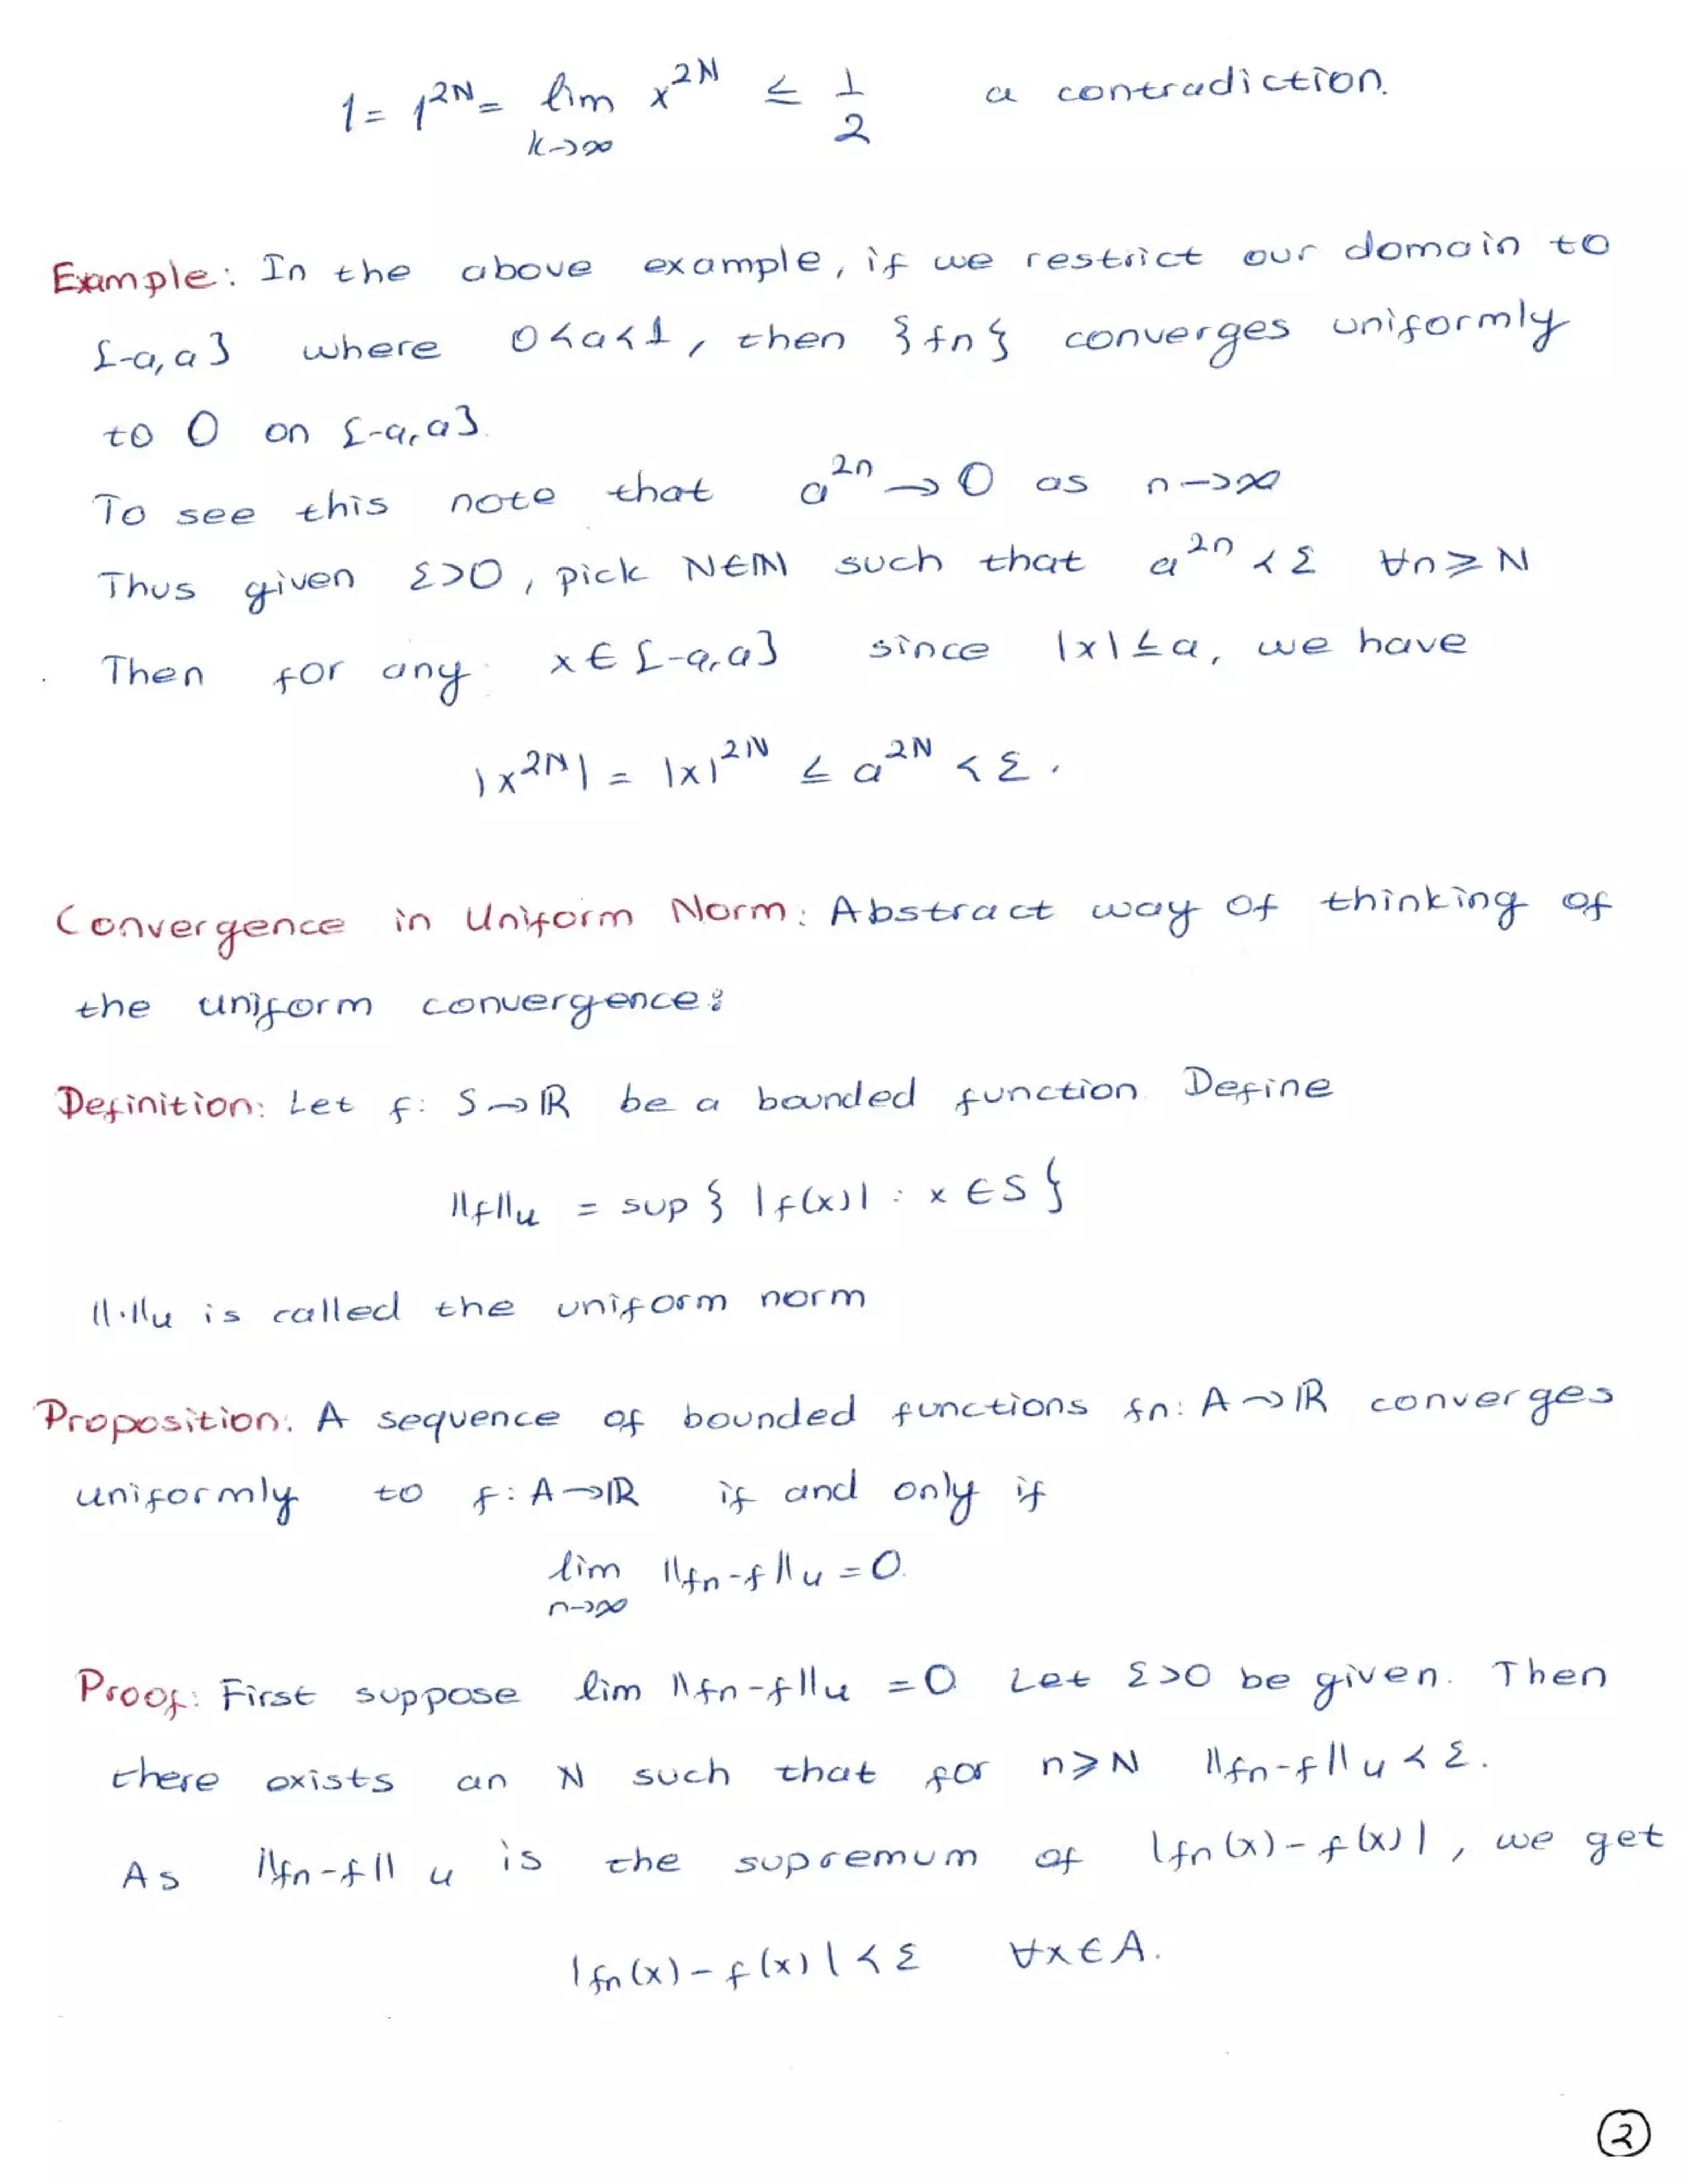 1 = 1^{2N} = lim_{k→∞} x^{2N} ≤ 1/2 a contradiction.
Example: In the above example, if we restrict our domain to
[-a, a] where 0<a<1, then {fn} converges uniformly
to 0 on [-a, a].
To see this note that a^{2n} → 0 as n→∞
Thus given ε>0, pick N∈ℕ such that a^{2n} < ε ∀n⩾N
Then for any x ∈ [-a, a] since |x| ≤ a, we have
|x^{2N}| = |x|^{2N} ≤ a^{2N} < ε.
Convergence in Uniform Norm: Abstract way of thinking of
the uniform convergence:
Definition: Let f: S→ℝ be a bounded function. Define
||f||u = sup { |f(x)| : x ∈ S }
||·||u is called the uniform norm
Proposition: A sequence of bounded functions fn: A→ℝ converges
uniformly to f: A→ℝ if and only if
lim_{n→∞} ||fn-f||u = 0.
Proof: First suppose lim ||fn-f||u = 0. Let ε>0 be given. Then
there exists an N such that for n⩾N ||fn-f||u < ε.
As ||fn-f||u is the supremum of |fn(x) - f(x)|, we get
|fn(x) - f(x)| < ε ∀x∈A.
2